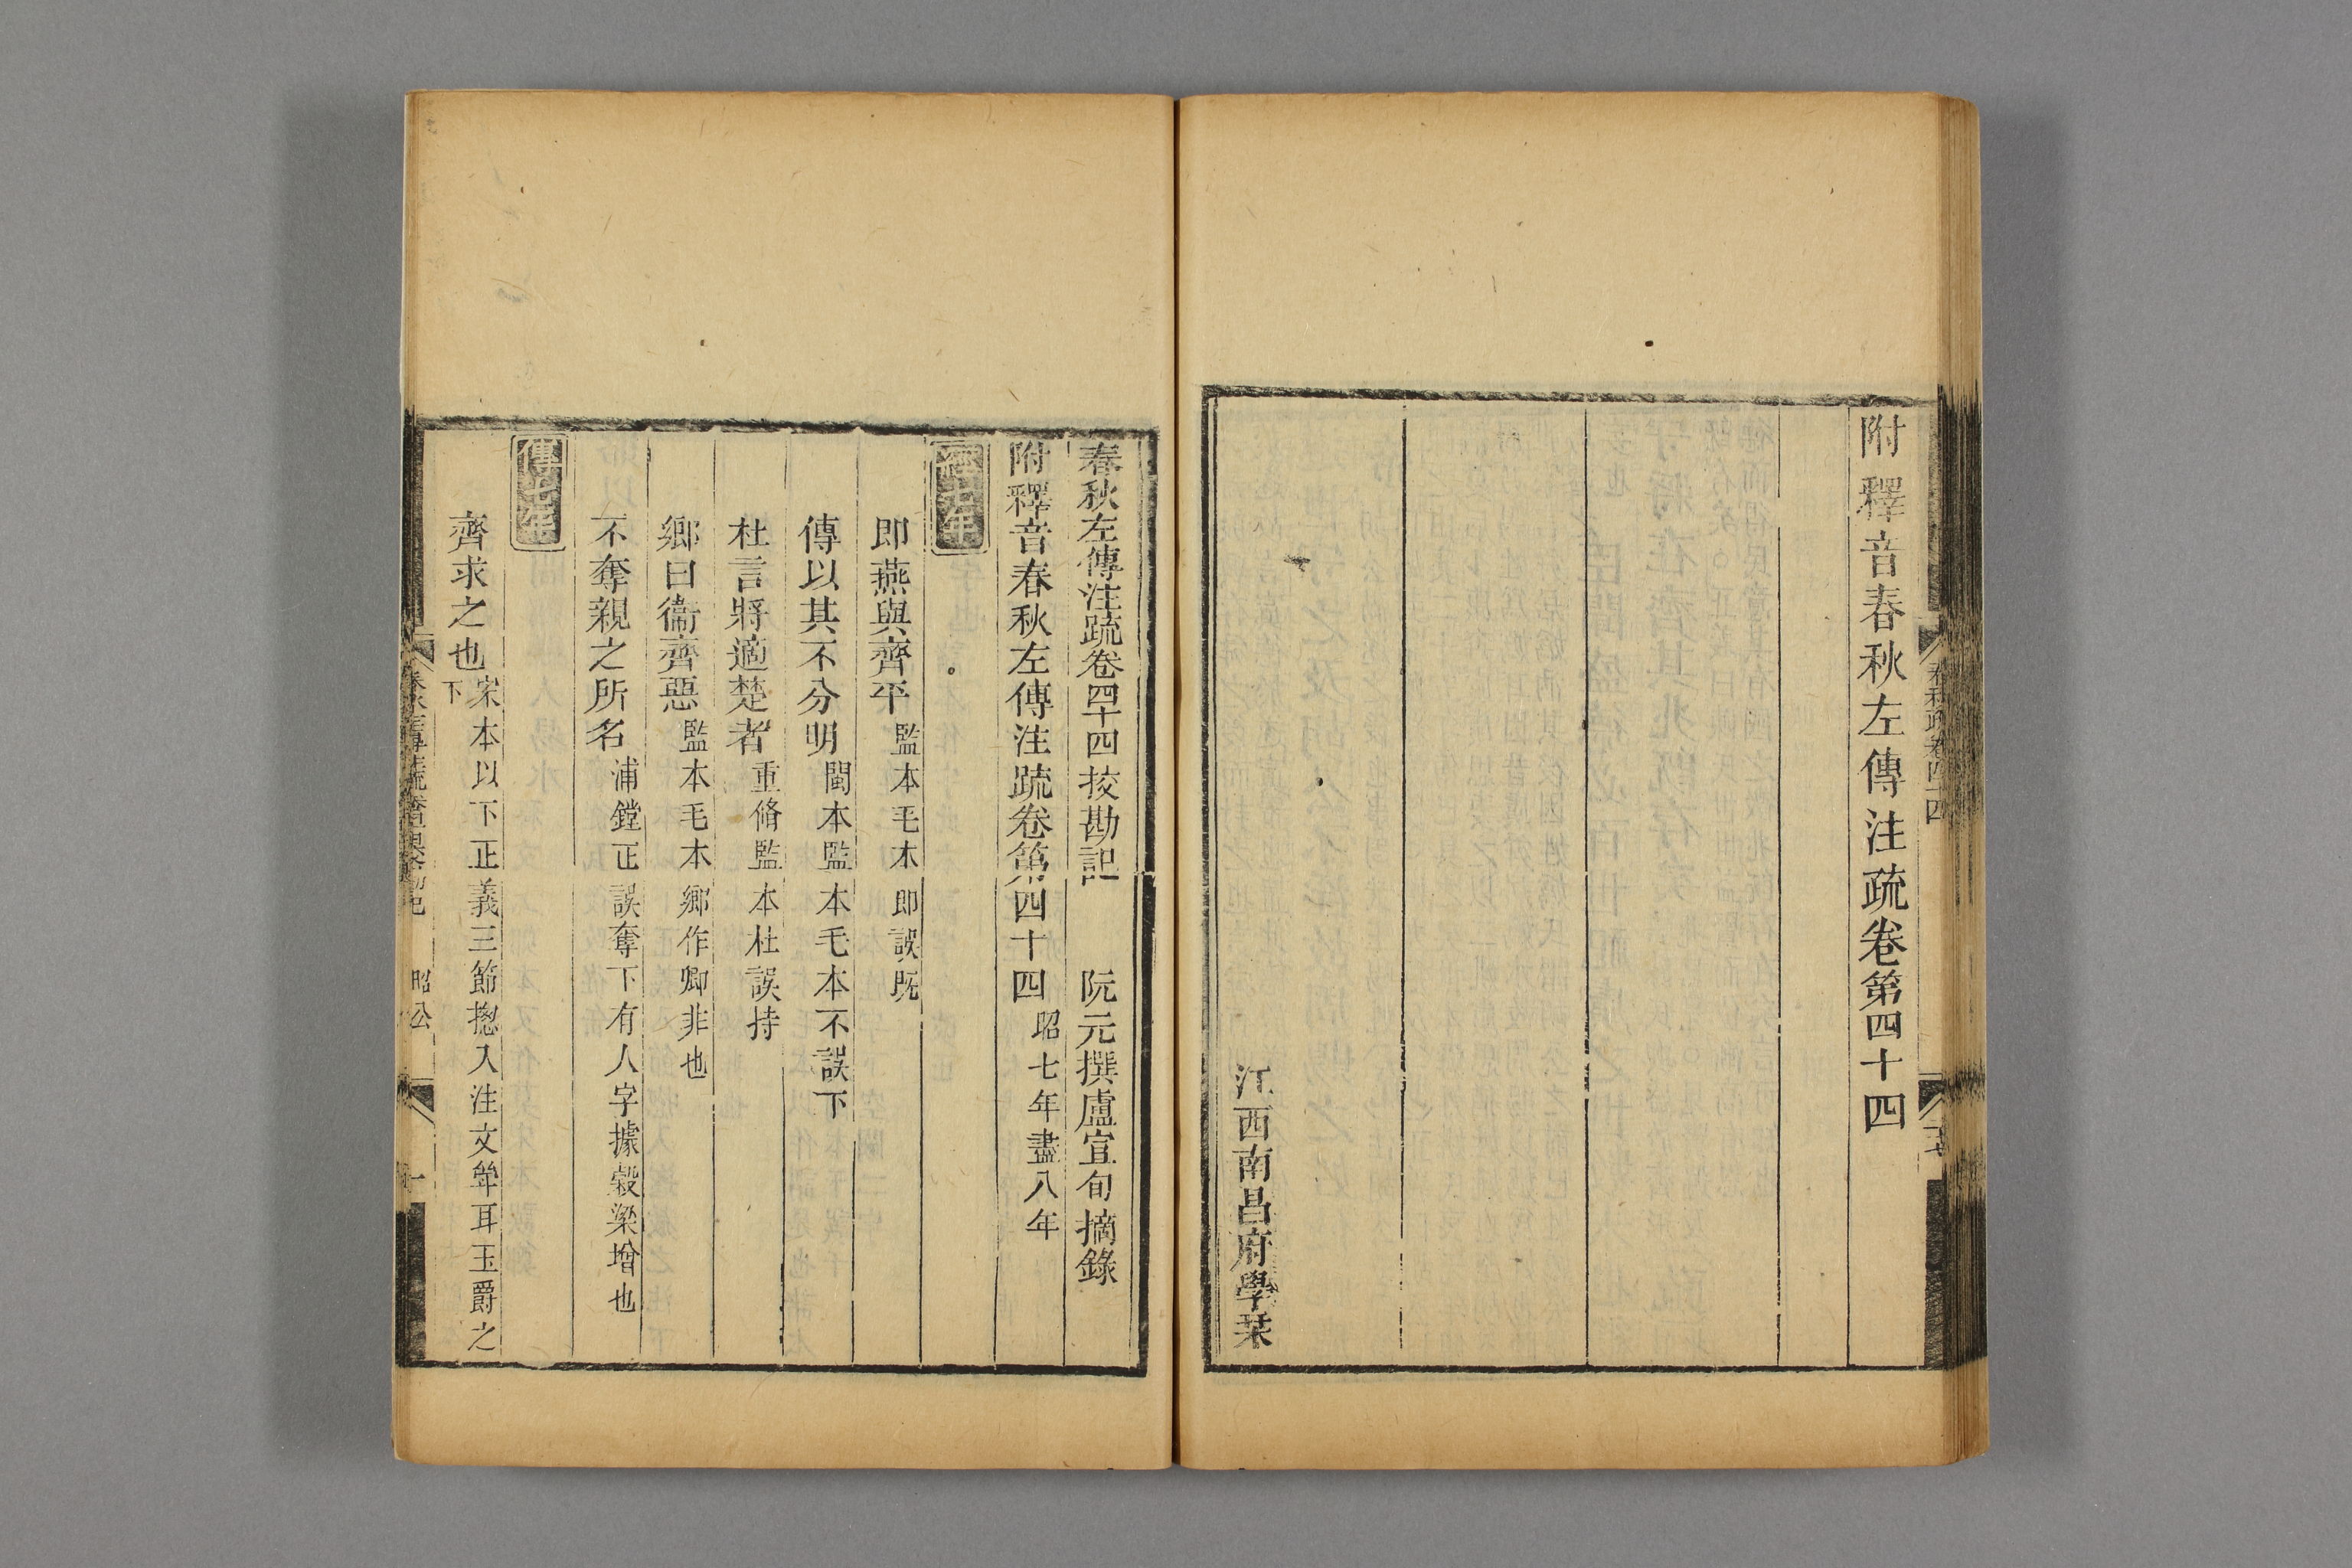 附釋音春秋左傳注疏卷第四十四
江西南昌府學栞
春秋左傳注疏卷四十四挍勘記 阮元撰盧宣旬摘錄
附釋音春秋左傳注疏卷第四十四 昭七年盡八年
經七年
即燕與齊平 監本毛本即誤既
傳以其不分明 閩本監本毛本不誤下
杜言將適楚者 重脩監本杜誤持
鄉曰衞齊惡 監本毛本鄉作卿非也
不奪親之所名 浦鏜正誤奪下有人字據穀梁增也
傳七年
齊求之也 宋本以下正義三節揔入注文斝耳玉爵之下
昭公 一